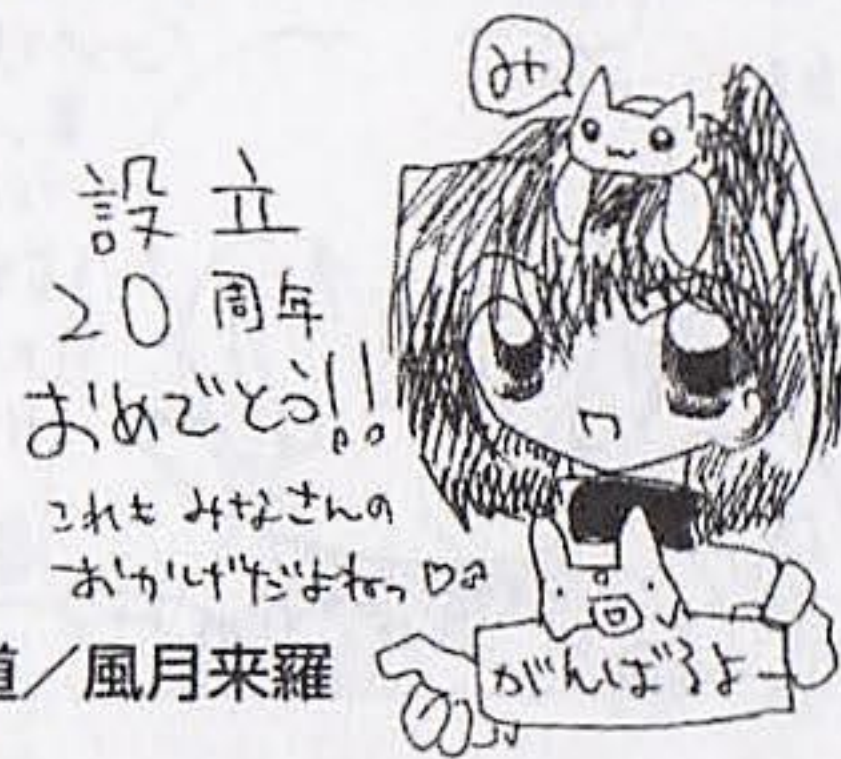 み
設立
20周年
おめでとう!!
これも みなさんの
おかげだよねっ♡
／風月来羅
がんばるよー